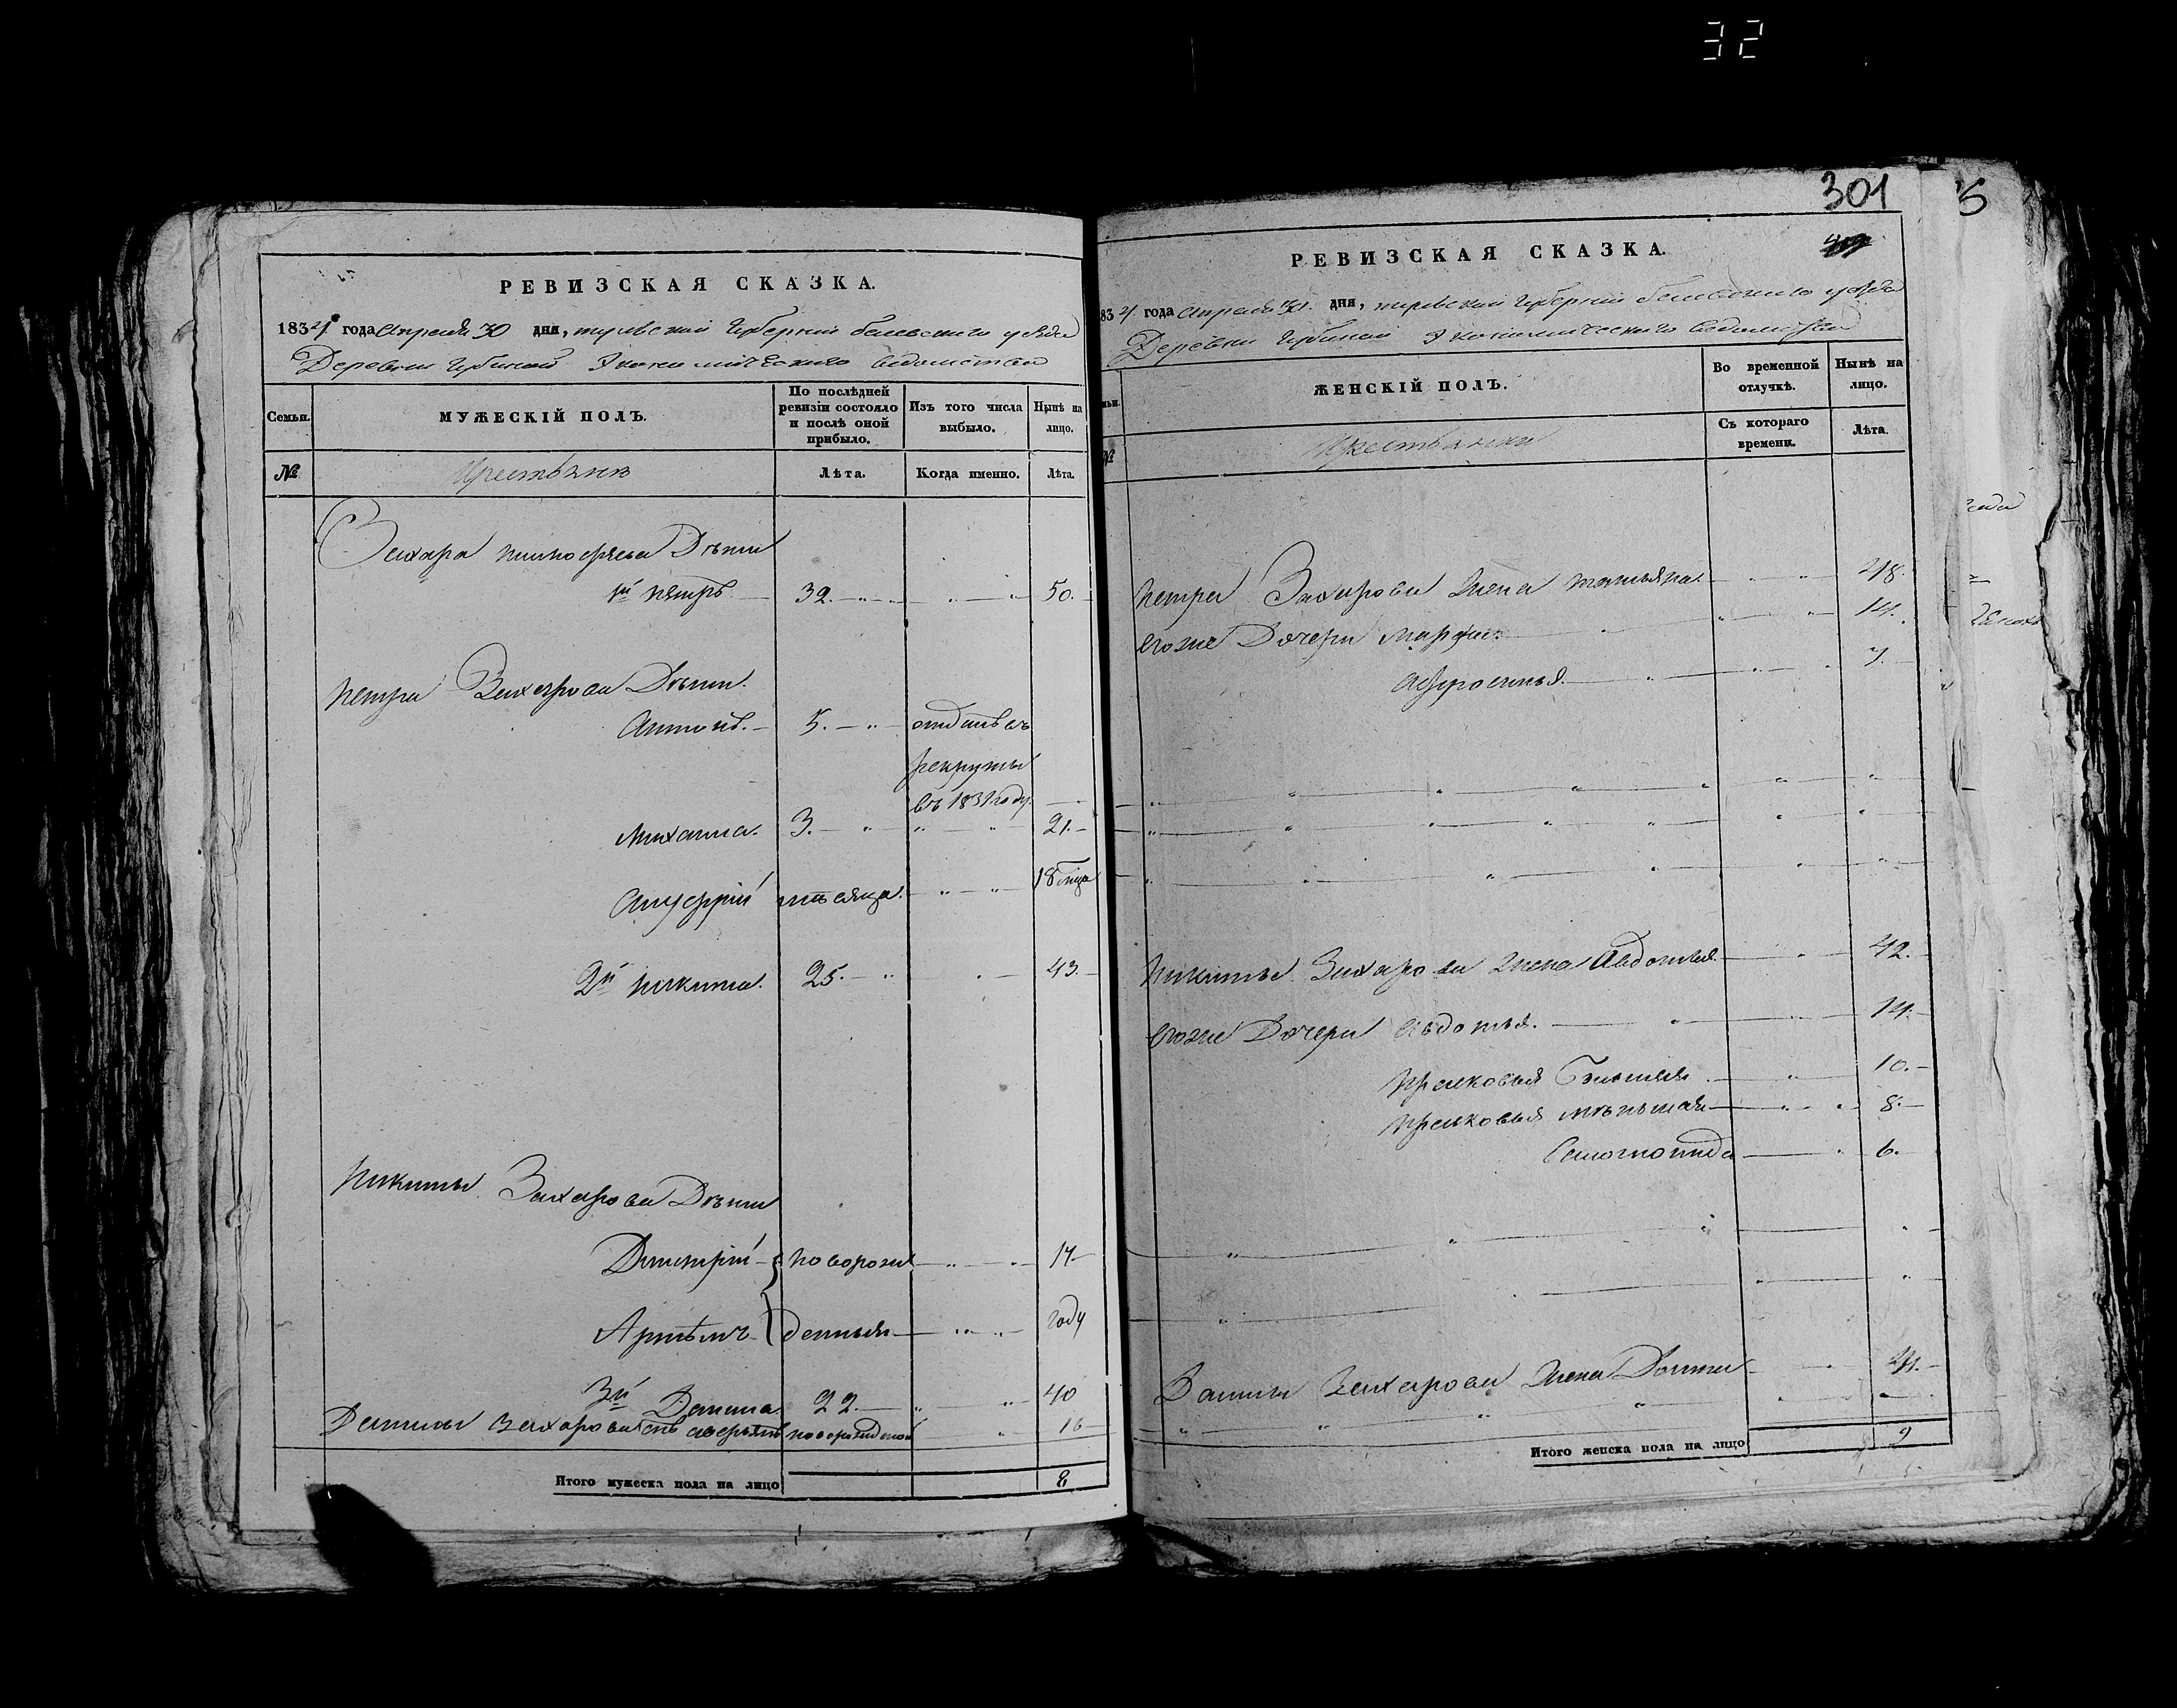 32
301
5
РЕВИЗСКАЯ СКАЗКА.
1834 года Апреля 30 дня, тульской Губернии белевского уезда
Деревни Экономического ведомства
Семьи.
МУЖЕСКІЙ ПОЛЪ.
По послѣдней ревизіи состояло и послѣ оной прибыло.
Изъ того числа выбыло.
Нынѣ на лицо.
№
Крестьяне
Лѣта.
Когда именно.
Лѣта.
Захара Дѣти
1й Петръ 32. 50.
Петра Захарова Дѣти.
Антонъ. 5. отданъ въ
рекруты
въ 1831 году.
Михаила. 3. 21.
Ануфрій месяца. 18
2й Никита. 25. 43.
Никиты Захарова Дѣти
Дмитрій новорож 14
Артѣмъ денныя году
3й Данила 22. 40
Данилы Захарова снъ аверьянъ новорожденой 16
Итого мужеска пола на лицо 8
РЕВИЗСКАЯ СКАЗКА.
834 года Апреля 30. дня, тульской Губернии белевского уезда
Деревни Экономического ведомства
ЖЕНСКІЙ ПОЛЪ.
Во временной отлучкѣ.
Нынѣ на лицо.
№
Крестьянки
Съ котораго времени.
Лѣта.
Петра Захарова Жена татьяна. 48.
Егоже Дочери Марфа. 14.
Афросинья. 7.
Никиты Захарова жена Авдотья 42.
Егоже Дочери Авдотья. 14.
Прасковья Большая 10.
Прасковья мѣньшая 8.
6.
Данилы Захарова Жена 41.
Итого женска пола на лицо 9